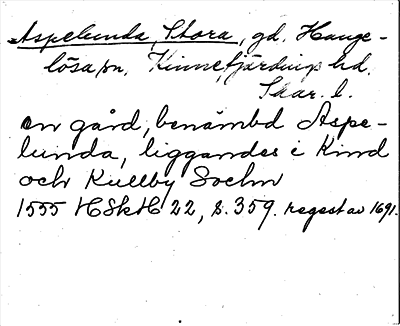 Aspelunda, Stora, gd, Hange-
lösa sn, Kinnefjärdings hd,
Skar. l.
en gård, benämbd Aspe-
lunda, liggandes i Kind
och Kullby Sochn
1555 HSkH 22, s. 359. regest av 1691.